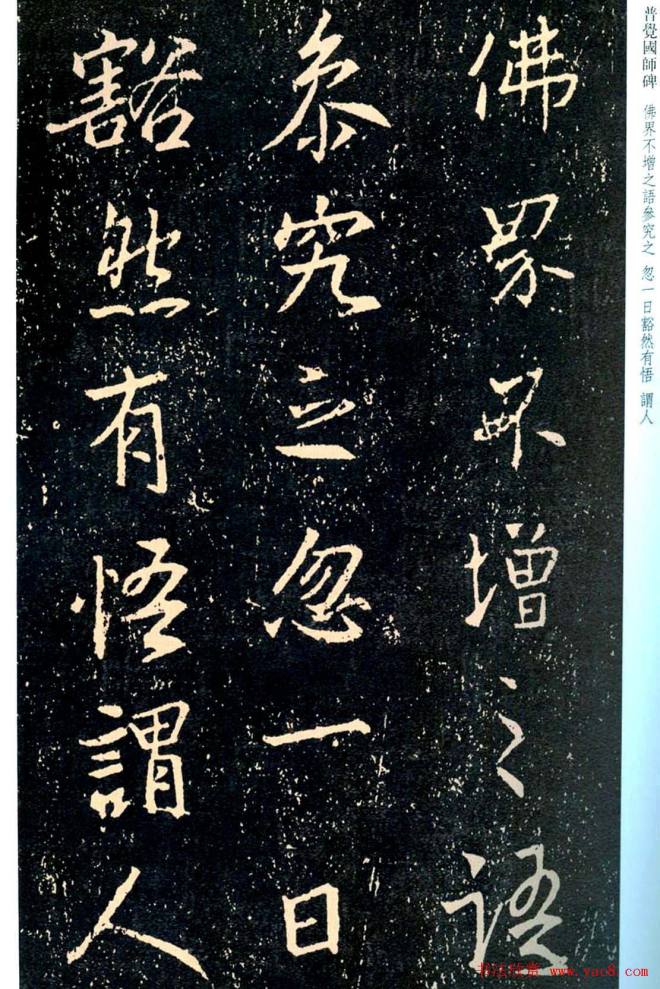 普覺國師碑 佛界不增之語參究之 忽一日豁然有悟 謂人
佛界不增之語
叅究之忽一日
豁然有悟謂人
书法欣赏 www.yac8.com